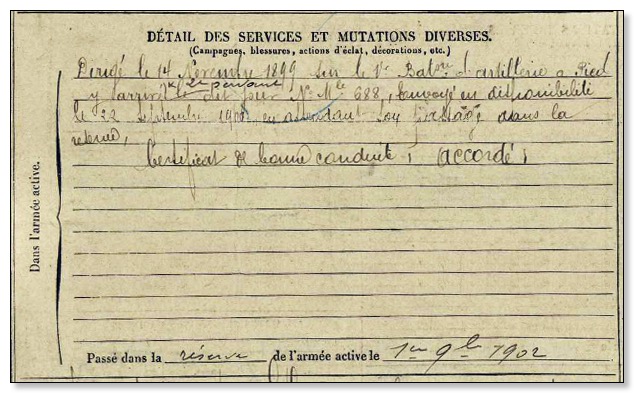 DÉTAIL DES SERVICES ET MUTATIONS DIVERSES.
(Campagnes, blessures, actions d'éclat, décorations, etc.)
Dirigé le 14 Novembre 1899 sur le Bat^on d'artillerie à Pied
y arrivé le dit jour N° M^le 688, Envoyé en disponibilité
le 22 septembre en attendant son passage dans la
réserve,
Certificat de bonne conduite, (accordé)
Dans l'armée active.
Passé dans la réserve de l'armée active le 1er 9bre 1902